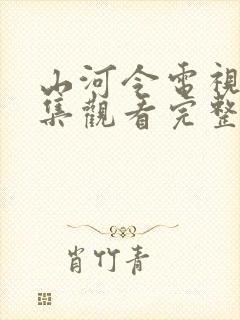 山河令電視
集觀看完整
肖竹青